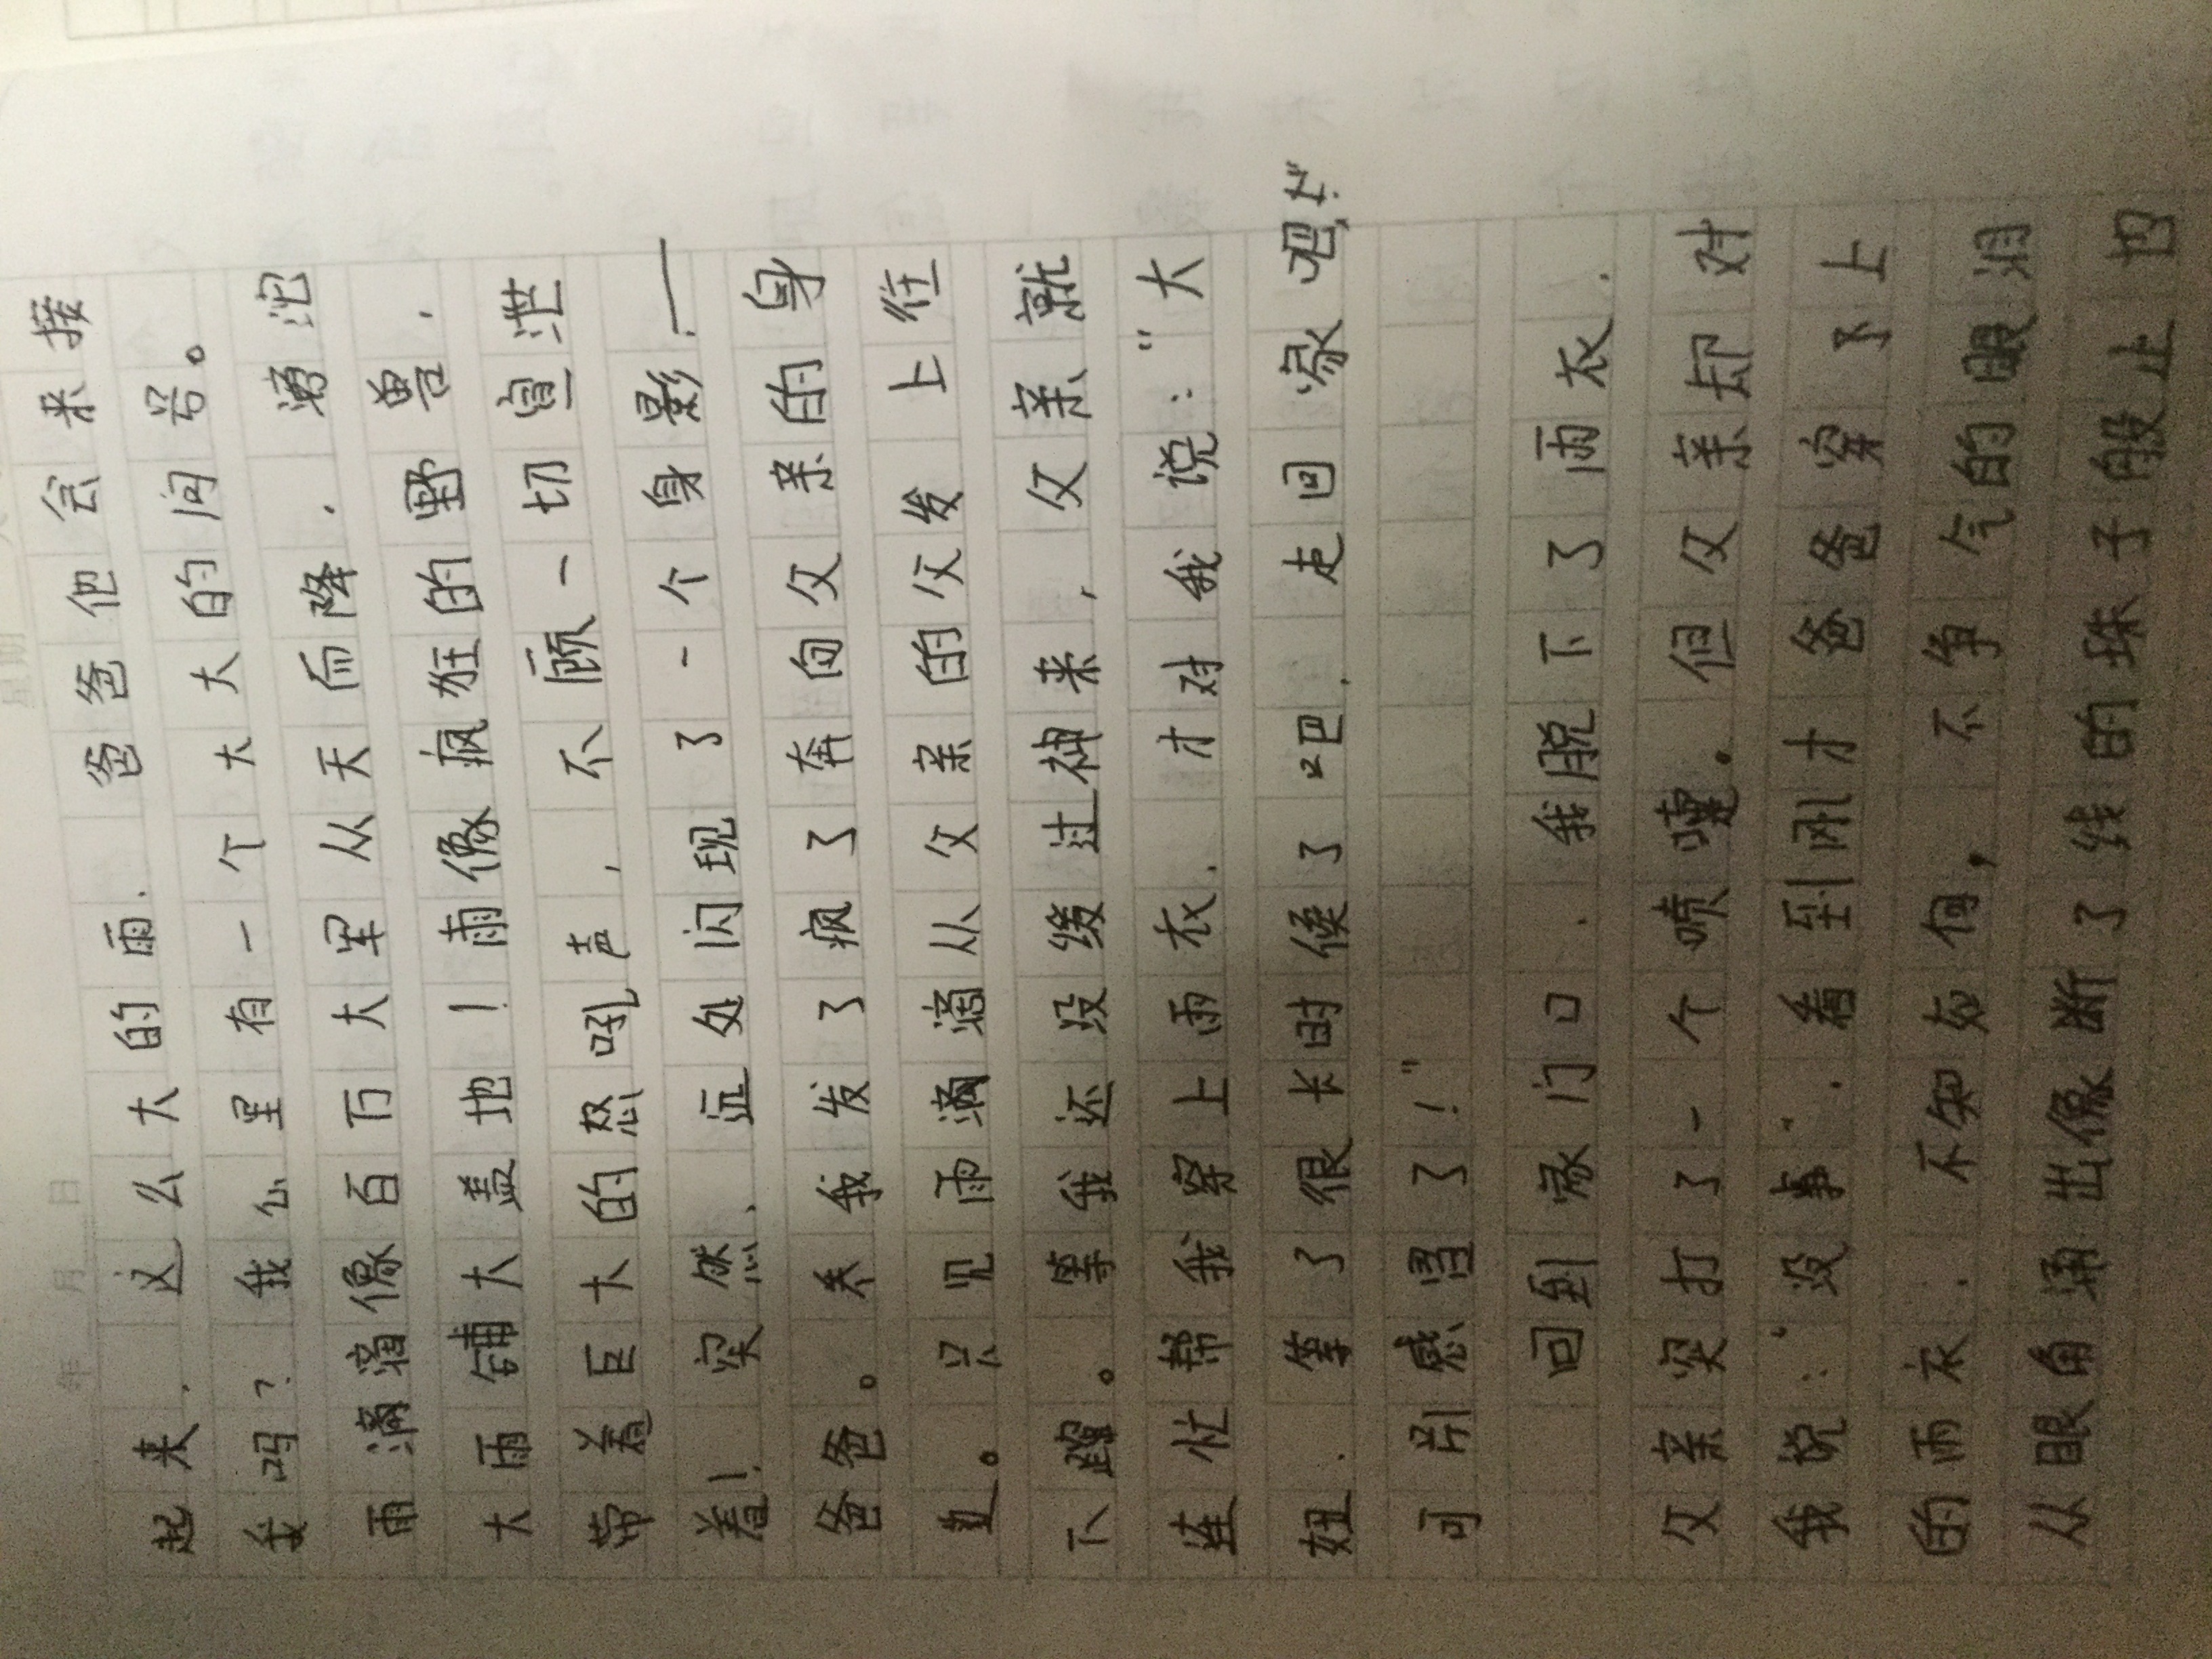 起来，这么大的雨，爸爸他会来接
我吗？我心里有一个大大的问号。
雨滴滴像百万大军从天而降，滂沱
大雨铺天盖地！雨像疯狂的野兽，
带着巨大的怒吼声，不顾一切宣泄
着！突然，远处闪现了一个身影——
爸爸。我发了疯了奔向父亲的身
边。只见雨滴滴从父亲的父发上往
下蹓。等我还没缓过神来，父亲就
连忙帮我穿上雨衣，才对我说：“大
妞，等了很长时候了吧，走回家吧，不
可别感冒了！”
回到家门口，我脱下了雨衣，
父亲突打了一个喷嚏。但父亲却对
我说：“没事”，看到刚才爸爸穿不上
的雨衣，不知如何，不争气的眼泪
从眼角涌出像断了线的珠子般止也